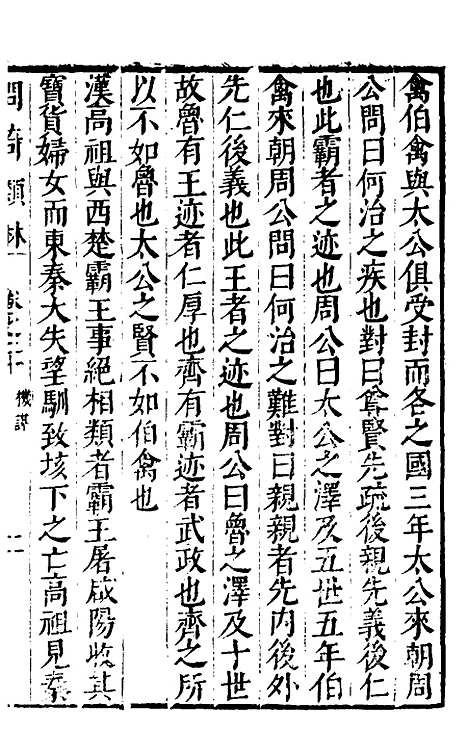 禽伯禽與太公俱受封而各之國三年太公來朝周
公問曰何治之疾也對曰尊賢先疏後親先義後仁
也此霸者之迹也周公曰太公之澤及五世五年伯
禽來朝周公問曰何治之難對曰親親者先内後外
先仁後義也此王者之迹也周公曰魯之澤及十世
故魯有王迹者仁厚也齊有霸迹者武政也齊之所
以不如魯也太公之賢不如伯禽也
漢高祖與西楚霸王事絕相類者霸王屠咸陽收其
寶貨婦女而東秦大失望馴致垓下之亡高祖見秦
問奇類林